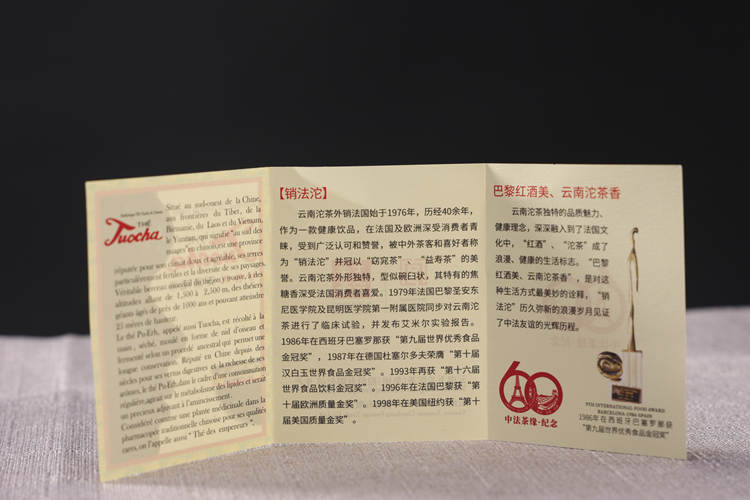 THÉ
Tuocha
Situé au sud-ouest de la Chine,
aux frontières du Tibet, de la
Birmanie, du Laos et du Vietnam,
le Yunnan, qui signifie "au sud des
nuages" en chinois, est une province
réputée pour son climat doux et agréable, ses terres
particulièrement fertiles et la diversité de ses paysages.
Véritable berceau mondial du théier, on y trouve, à des
altitudes allant de 1,500 à 2,500 m, des théiers
géants âgés de près de 1000 ans et pouvant atteindre
25 mètres de hauteur.
Le thé Pu-Erh, appelé aussi Tuocha, est récolté à la
main, séché, moulé en forme de nid d'oiseau et
fermenté selon un procédé ancestral qui permet une
longue conservation. Réputé en Chine depuis des
siècles pour ses vertus digestives et la richesse de ses
arômes, le thé Pu-Erh, dans le cadre d'une consommation
régulière, agirait sur le métabolisme des lipides et serait
un précieux adjuvant à l'amincissement.
Considéré comme une plante médicinale dans la
pharmacopée traditionnelle chinoise pour ses qualités
rares, on l'appelle aussi " Thé des empereurs ".
【销法沱】
云南沱茶外销法国始于1976年，历经40余年，
作为一款健康饮品，在法国及欧洲深受消费者青
睐，受到广泛认可和赞誉，被中外茶客和喜好者称
为“销法沱”并冠以“窈窕茶”、“益寿茶”的美
誉。云南沱茶外形独特，型似碗臼状，其特有的焦
糖香深受法国消费者喜爱。1979年法国巴黎圣安东
尼医学院及昆明医学院第一附属医院同步对云南沱
茶进行了临床试验，并发布艾米尔实验报告。
1986年在西班牙巴塞罗那获“第九届世界优秀食品
金冠奖”，1987年在德国杜塞尔多夫荣膺“第十届
汉白玉世界食品金冠奖”。1993年再获“第十六届
世界食品饮料金冠奖”。1996年在法国巴黎获“第
十届欧洲质量金奖”。1998年在美国纽约获“第十
届美国质量金奖”。
巴黎红酒美、云南沱茶香
云南沱茶独特的品质魅力、
健康理念，深深融入到了法国文
化中，“红酒”、“沱茶”成了
浪漫、健康的生活标志。“巴黎
红酒美、云南沱茶香”，是对这
种生活方式最美妙的诠释，“销
法沱”历久弥新的浪漫岁月见证
了中法友谊的光辉历程。
60
中法茶缘·纪念
9TH INTERNATIONAL FOOD AWARD
BARCELONA 1986 SPAIN
1986年在西班牙巴塞罗那获
“第九届世界优秀食品金冠奖”